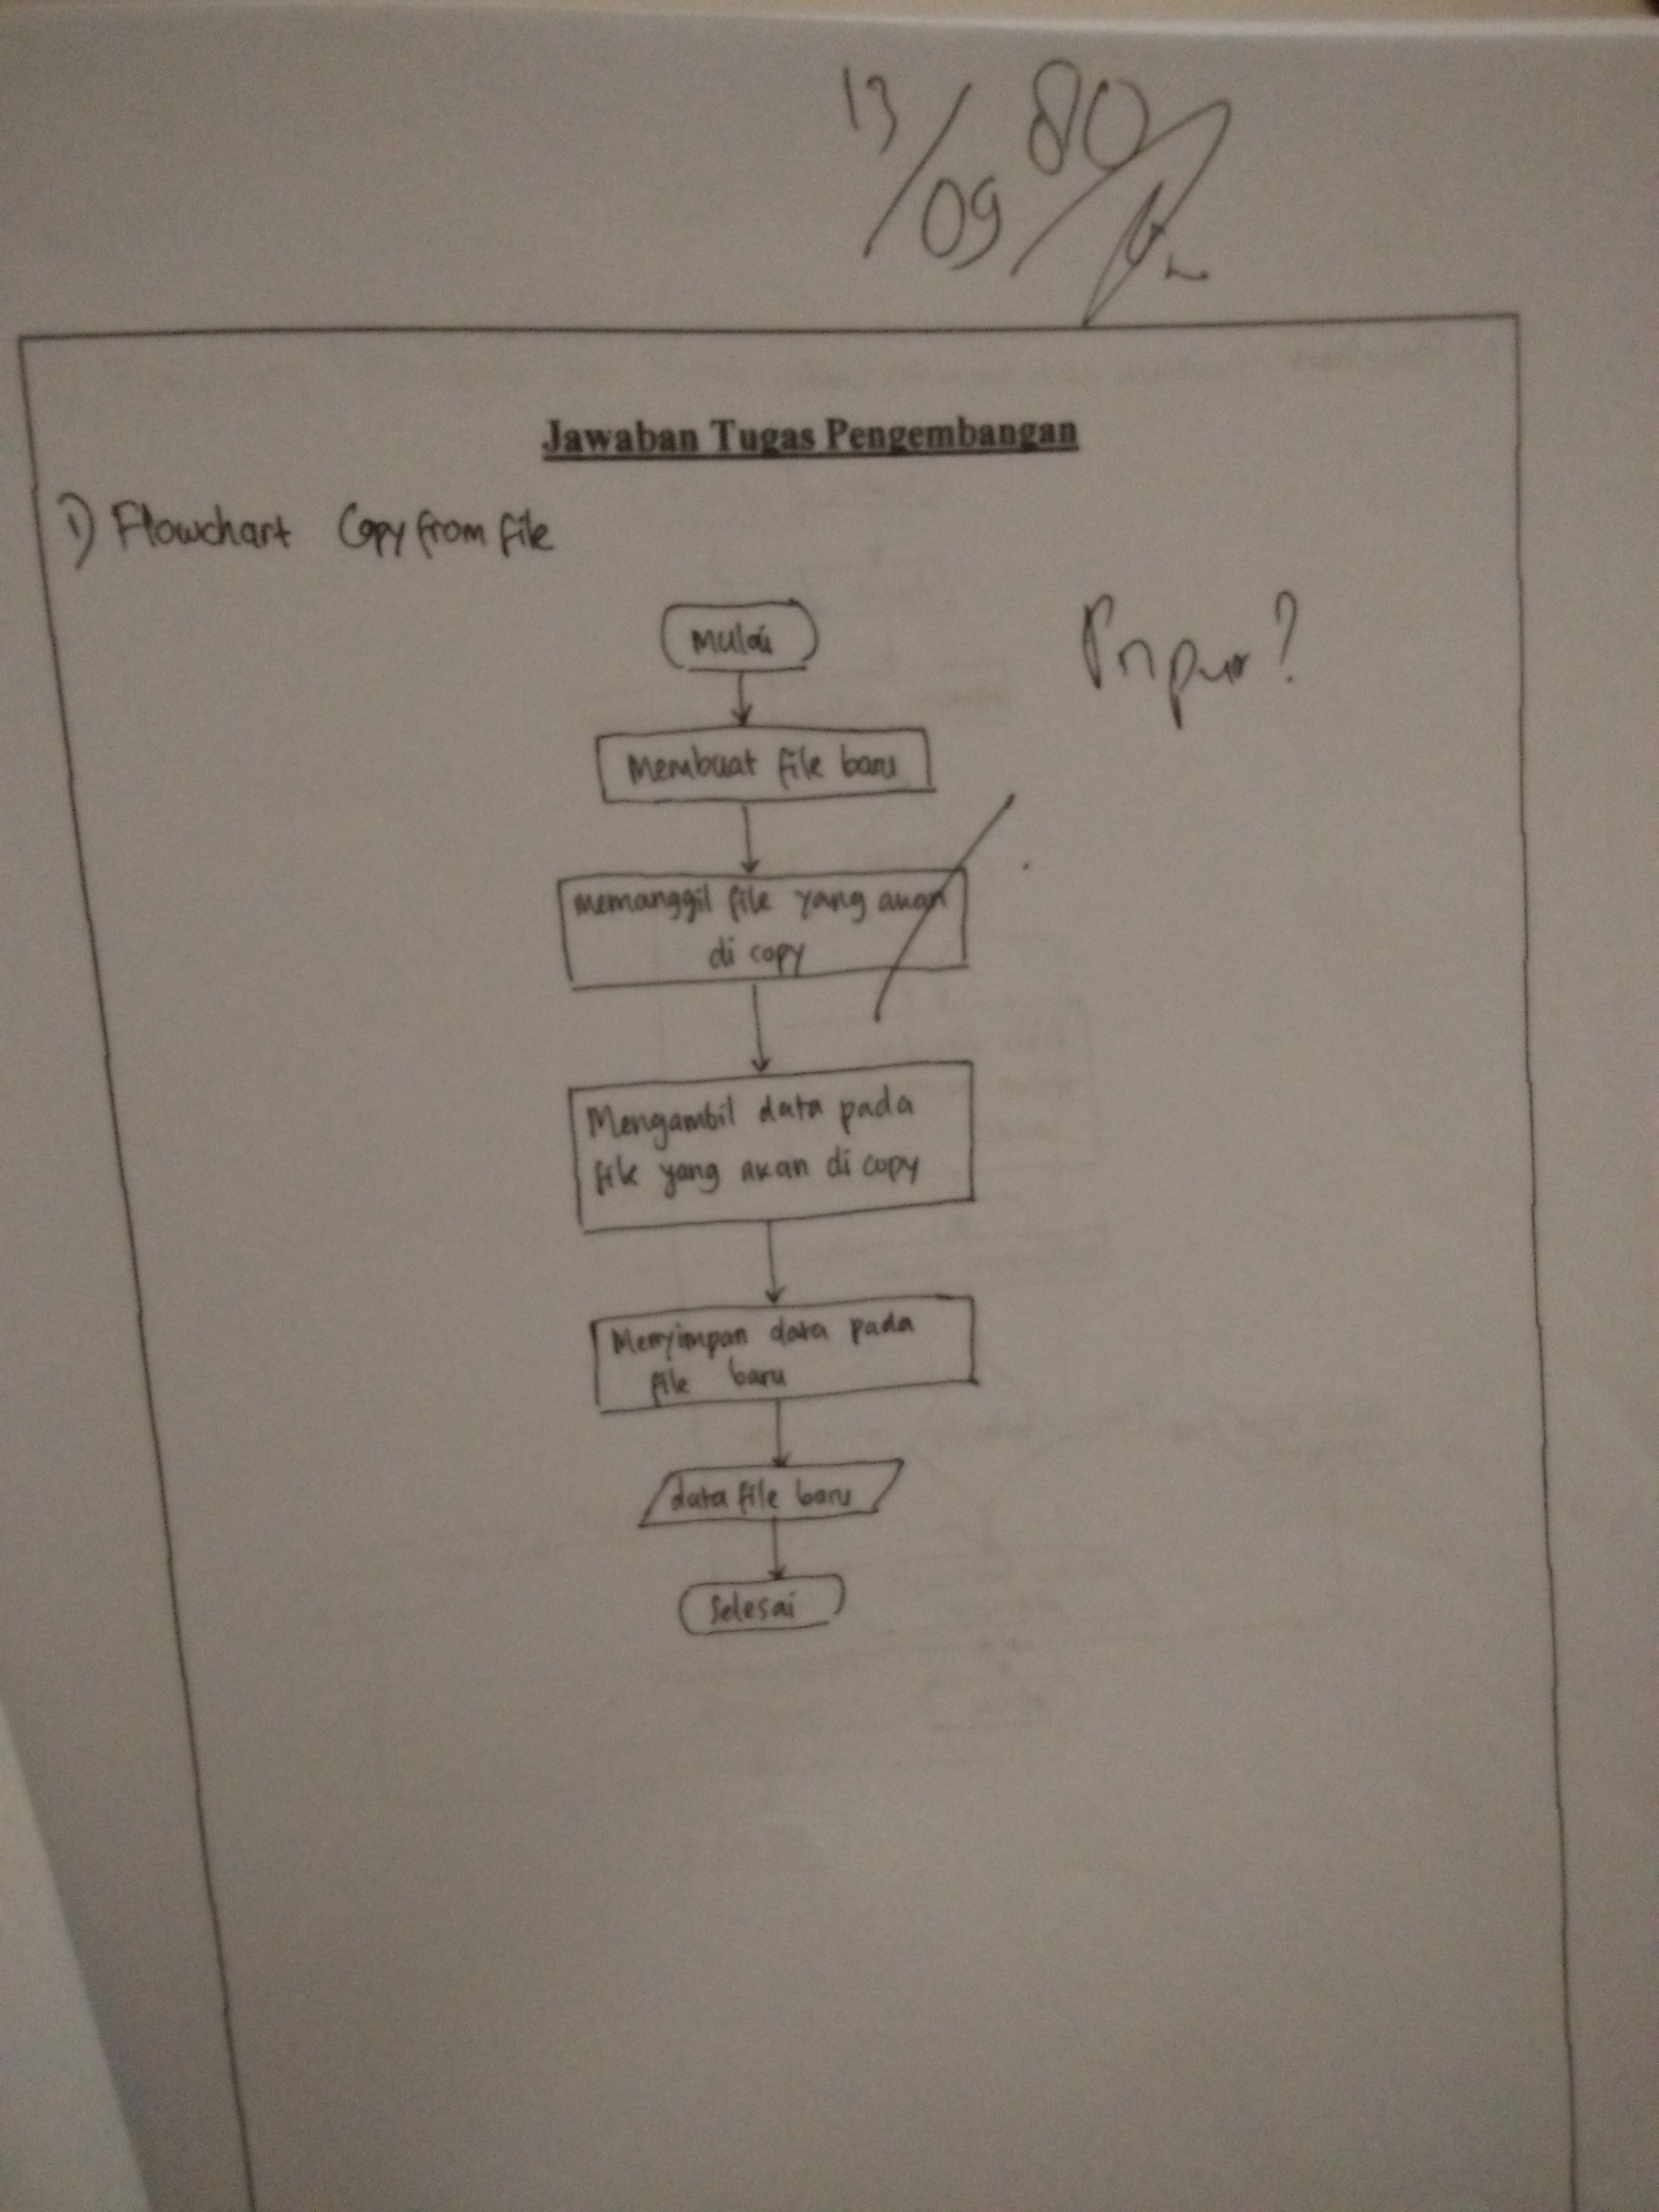 13/09 80
Jawaban Tugas Pengembangan
1) Flowchart Copy from file
Mulai
Input?
Membuat file baru
memanggil file yang akan
di copy
Mengambil data pada
file yang akan di copy
Menyimpan data pada
file baru
data file baru
Selesai